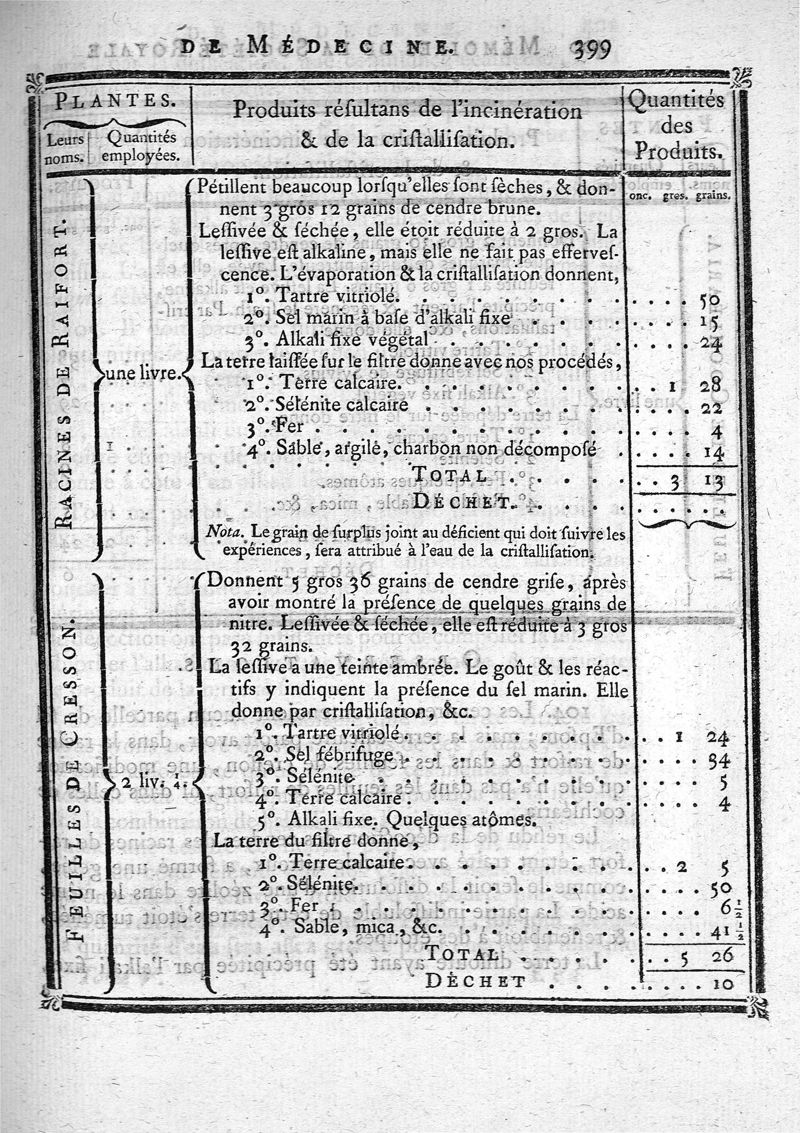 DE MÉDECINE. 399
PLANTES.
Leurs noms.
Quantités employées.
Produits réſultans de l'incinération
& de la criſtalliſation.
Quantités
des
Produits.
onc. gres. grains.
RACINES DE RAIFORT.
une livre.
Pétillent beaucoup lorſqu'elles ſont ſèches, & don-
nent 3 gros 12 grains de cendre brune.
Leſſivée & ſéchée, elle étoit réduite à 2 gros. La
leſſive eſt alkaline, mais elle ne fait pas efferveſ-
cence. L'évaporation & la criſtalliſation donnent,
1°. Tartre vitriolé. . . . . . . . . . . . . 50
2°. Sel marin à baſe d'alkali fixe . . . . . . . . 15
3°. Alkali fixe végétal . . . . . . . . . . . 24
La terre laiſſée ſur le filtre donne avec nos procédés,
1°. Terre calcaire. . . . . . . . . . . 1 28
2°. Sélénite calcaire . . . . . . . . . . . 22
3°. Fer . . . . . . . . . . . . . . . 4
4°. Sable, argile, charbon non décompoſé . . . . . 14
TOTAL . . . . . . . . 3 13
DÉCHET. . . . . . . . . .
Nota. Le grain de ſurplus joint au déficient qui doit ſuivre les
expériences, ſera attribué à l'eau de la criſtalliſation.
FEUILLES DE CRESSON.
2 liv. ¼.
Donnent 5 gros 36 grains de cendre griſe, après
avoir montré la préſence de quelques grains de
nitre. Leſſivée & ſéchée, elle eſt réduite à 3 gros
32 grains.
La leſſive a une teinte ambrée. Le goût & les réac-
tifs y indiquent la préſence du ſel marin. Elle
donne par criſtalliſation, &c.
1°. Tartre vitriolé . . . . . . . . . . 1 24
2°. Sel fébrifuge . . . . . . . . . . . . 34
3°. Sélénite . . . . . . . . . . . . . . 5
4°. Terre calcaire . . . . . . . . . . . . 4
5°. Alkali fixe. Quelques atômes.
La terre du filtre donne,
1°. Terre calcaire . . . . . . . . . . 2 5
2°. Sélénite. . . . . . . . . . . . . . 50
3°. Fer . . . . . . . . . . . . . . . 6 ½
4°. Sable, mica, &c. . . . . . . . . . . 41 ½
TOTAL . . . . . . . . 5 26
DÉCHET . . . . . . . . . 10